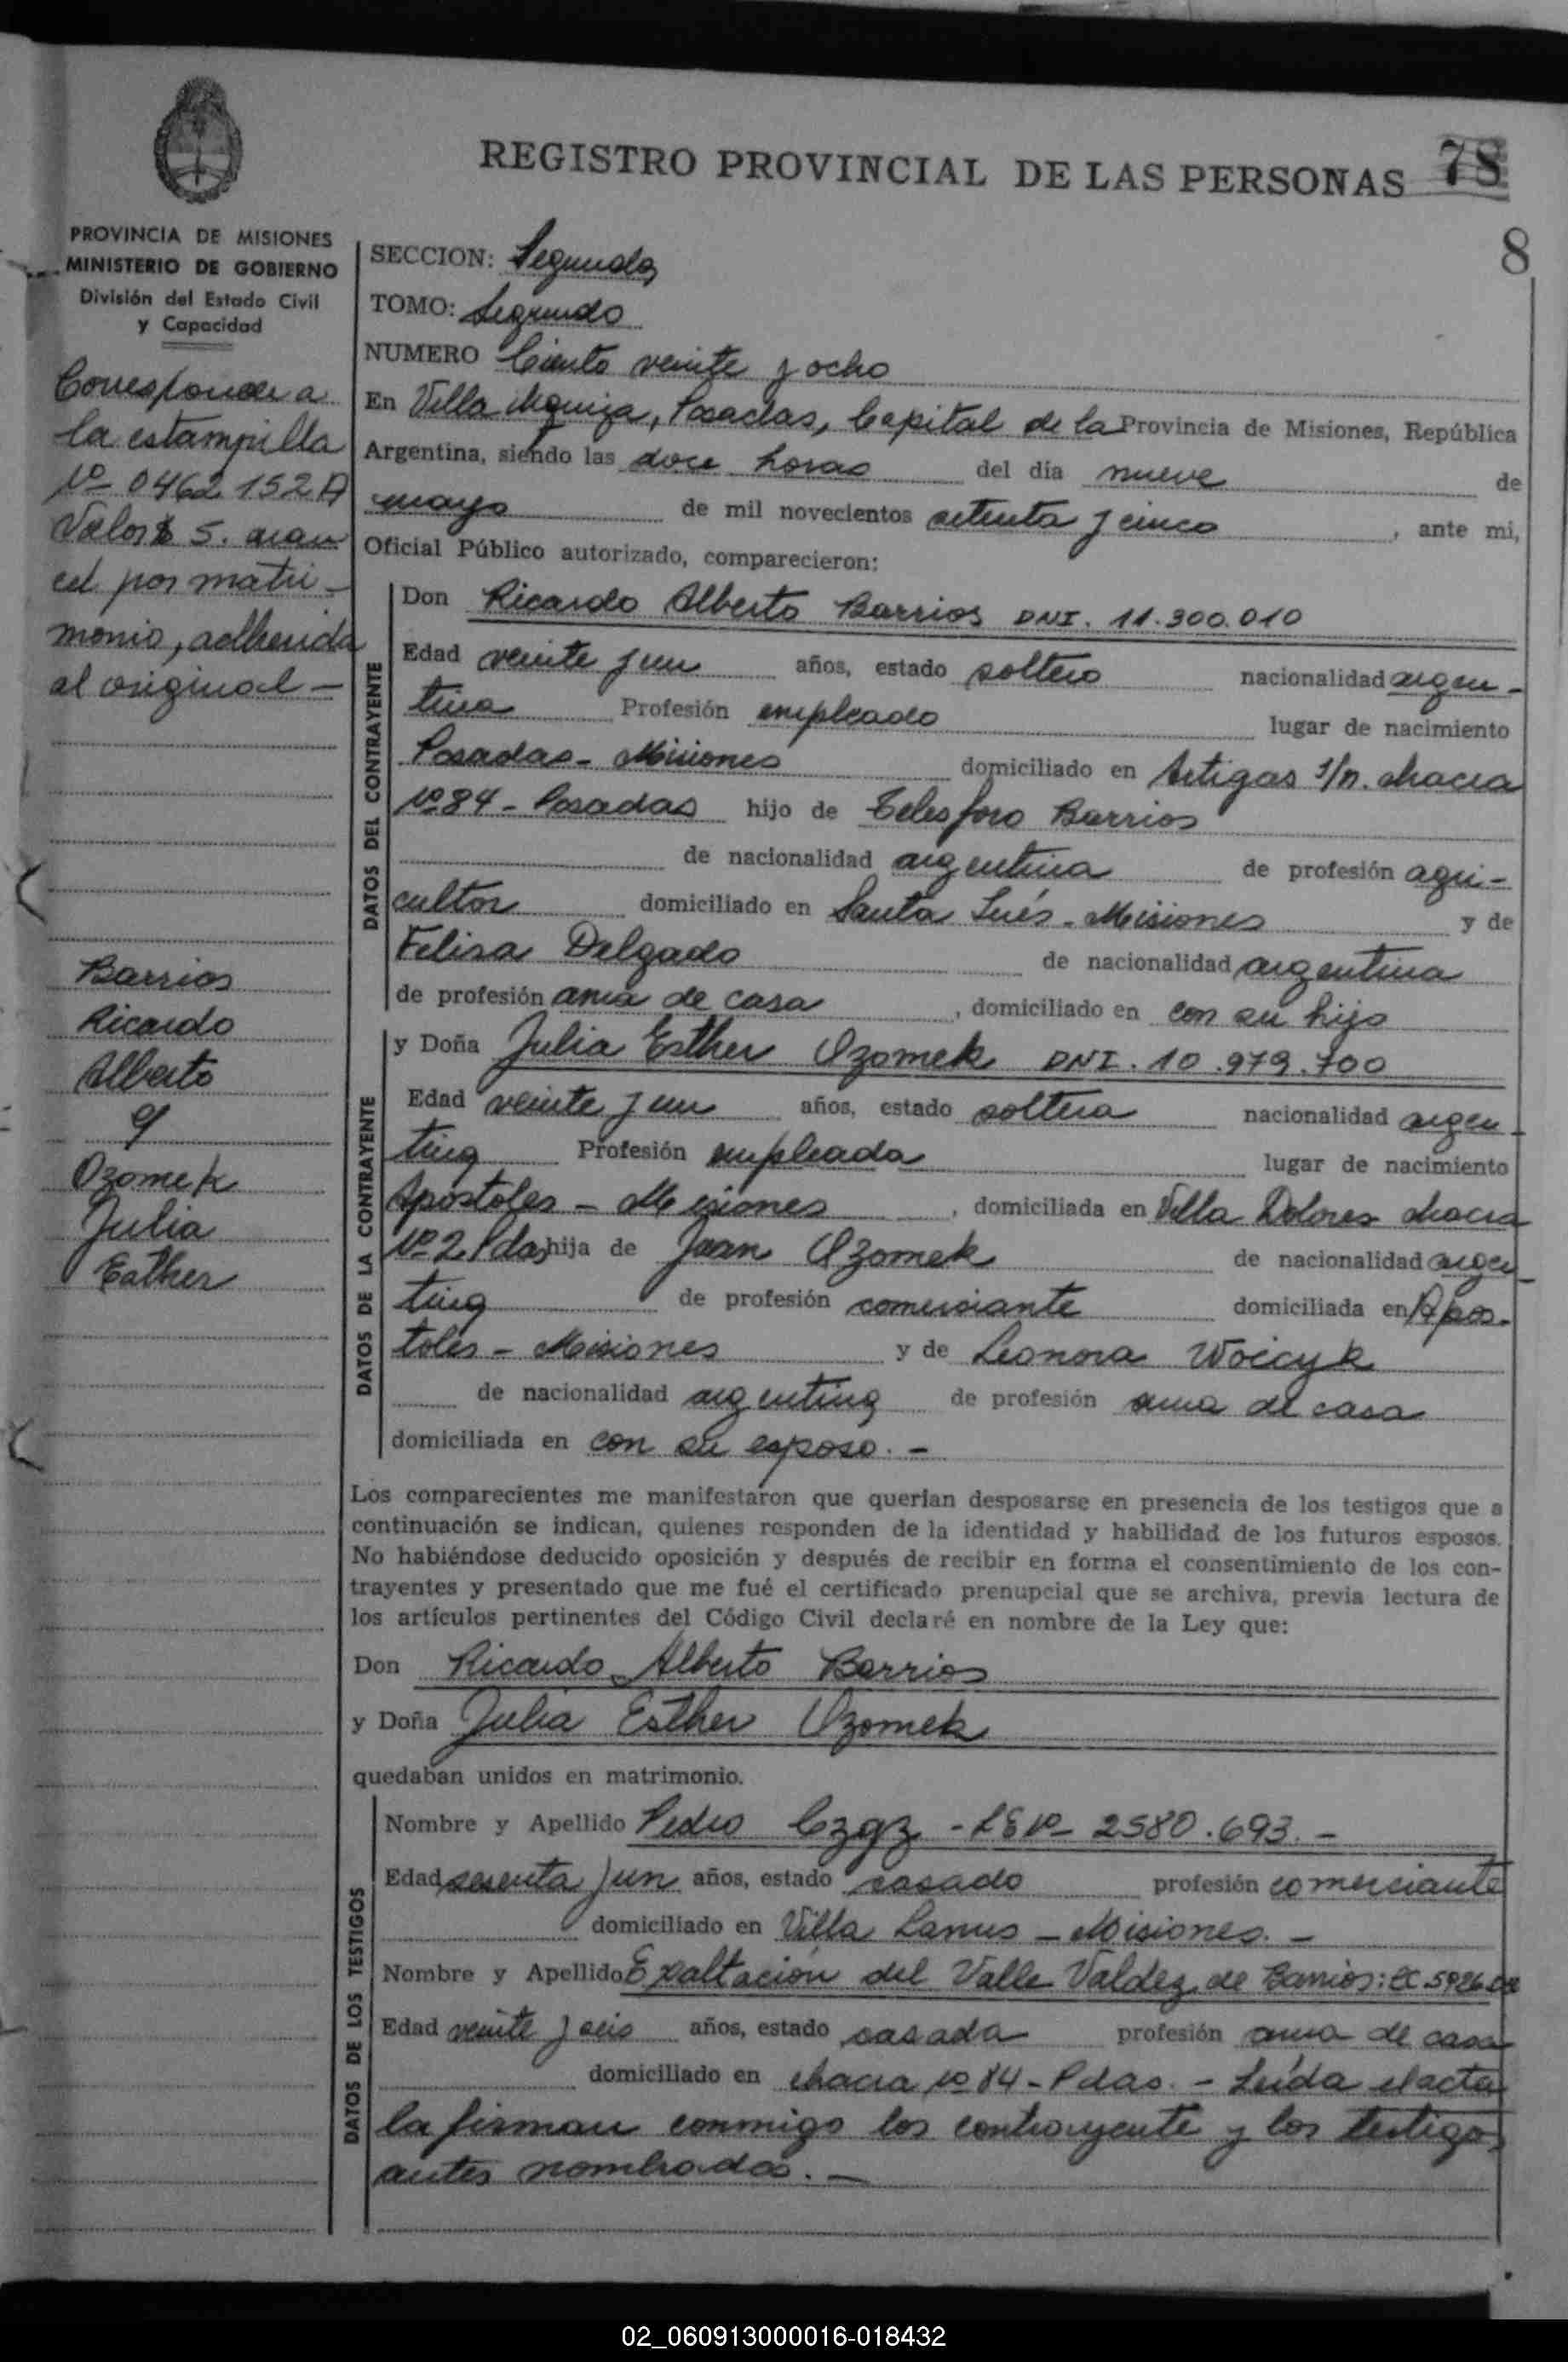 REGISTRO PROVINCIAL DE LAS PERSONAS 78
8
PROVINCIA DE MISIONES
MINISTERIO DE GOBIERNO
División del Estado Civil
y Capacidad
Corresponde a
la estampilla
Nº 0462152A
Valor $ 5. aran
cel por matri-
monio, adherida
al original -
Barrios
Ricardo
Alberto
y
Ozomek
Julia
Esther
SECCION: Segunda
TOMO: Segundo
NUMERO Ciento veinte y ocho
En Villa Urquiza, Posadas, Capital de la Provincia de Misiones, República
Argentina, siendo las doce horas del día nueve de
mayo de mil novecientos setenta y cinco, ante mi,
Oficial Público autorizado, comparecieron:
DATOS DEL CONTRAYENTE
Don Ricardo Alberto Barrios DNI. 11.300.010
Edad veinte y un años, estado soltero nacionalidad argen-
tina Profesión empleado lugar de nacimiento
Posadas - Misiones domiciliado en Artigas s/n. chacra
Nº 84 - Posadas hijo de Telesforo Barrios
de nacionalidad argentina de profesión agri-
cultor domiciliado en Santa Inés - Misiones y de
Felisa Delgado de nacionalidad argentina
de profesión ama de casa, domiciliado en con su hijo
DATOS DE LA CONTRAYENTE
y Doña Julia Esther Ozomek DNI. 10.979.700
Edad veinte y un años, estado soltera nacionalidad argen-
tina Profesión empleada lugar de nacimiento
Apostoles - Misiones, domiciliada en Villa Dolores chacra
Nº 2 Pdas, hija de Juan Ozomek de nacionalidad argen-
tina de profesión comerciante domiciliada en Apos-
toles - Misiones y de Leonora Woicyk
de nacionalidad argentina de profesión ama de casa
domiciliada en con su esposo. -
Los comparecientes me manifestaron que querían desposarse en presencia de los testigos que a
continuación se indican, quienes responden de la identidad y habilidad de los futuros esposos.
No habiéndose deducido oposición y después de recibir en forma el consentimiento de los con-
trayentes y presentado que me fué el certificado prenupcial que se archiva, previa lectura de
los artículos pertinentes del Código Civil declaré en nombre de la Ley que:
Don Ricardo Alberto Barrios
y Doña Julia Esther Ozomek
quedaban unidos en matrimonio.
DATOS DE LOS TESTIGOS
Nombre y Apellido Pedro - LE Nº 2580.693. -
Edad sesenta y un años, estado casado profesión comerciante
domiciliado en Villa Lanus - Misiones. -
Nombre y Apellido Exaltación del Valle Valdez de Barrios:
Edad veinte y seis años, estado casada profesión ama de casa
domiciliado en chacra Nº 84 - Pdas. - Leída el acta
la firman conmigo los contrayente y los testigos
antes nombrados. -
02_060913000016-018432